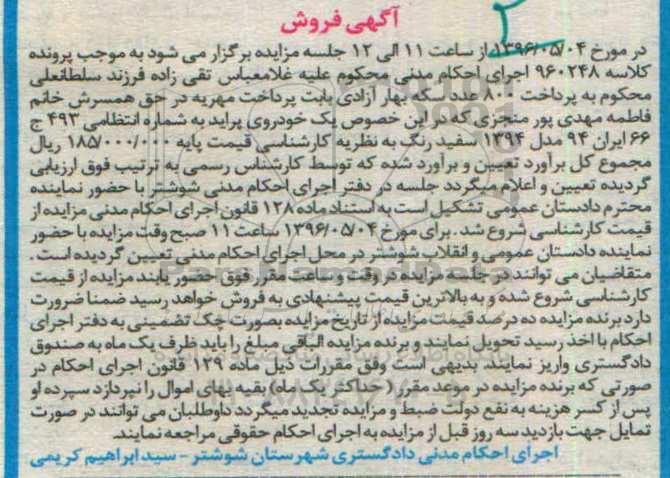 آگهی فروش
در مورخ ۱۳۹۶/۰۵/۰۴ از ساعت ۱۱ الی ۱۲ جلسه مزایده برگزار می شود به موجب پرونده
کلاسه ۹۶۰۲۴۸ اجرای احکام مدنی محکوم علیه غلامعباس تقی زاده فرزند سلطانعلی
محکوم به پرداخت ۸۰۰ عدد سکه بهار آزادی بابت پرداخت مهریه در حق همسرش خانم
فاطمه مهدی پور منجزی که در این خصوص یک خودروی پراید به شماره انتظامی ۴۹۳ ج
۶۶ ایران ۹۴ مدل ۱۳۹۴ سفید رنگ به نظریه کارشناسی قیمت پایه ۱۸۵/۰۰۰/۰۰۰ ریال
مجموع کل برآورد تعیین و برآورد شده که توسط کارشناس رسمی به ترتیب فوق ارزیابی
گردیده تعیین و اعلام میگردد جلسه در دفتر اجرای احکام مدنی شوشتر با حضور نماینده
محترم دادستان عمومی تشکیل است به استناد ماده ۱۲۸ قانون اجرای احکام مدنی مزایده از
قیمت کارشناسی شروع شد . برای مورخ ۱۳۹۶/۰۵/۰۴ ساعت ۱۱ صبح وقت مزایده با حضور
نماینده دادستان عمومی و انقلاب شوشتر در محل اجرای احکام مدنی تعیین گردیده است .
متقاضیان می توانند در جلسه مزایده در وقت و ساعت مقرر فوق حضور یابند مزایده از قیمت
کارشناسی شروع شده و به بالاترین قیمت پیشنهادی به فروش خواهد رسید ضمنا ضرورت
دارد برنده مزایده ده درصد قیمت مزایده از تاریخ مزایده بصورت چک تضمینی به دفتر اجرای
احکام با اخذ رسید تحویل نمایند و برنده مزایده الباقی مبلغ را باید ظرف یک ماه به صندوق
دادگستری واریز نمایند. بدیهی است وفق مقررات ذیل ماده ۱۲۹ قانون اجرای احکام در
صورتی که برنده مزایده در موعد مقرر ( حداکثر یک ماه) بقیه بهای اموال را نپردازد سپرده او
پس از کسر هزینه به نفع دولت ضبط و مزایده تجدید میگردد داوطلبان می توانند در صورت
تمایل جهت بازدید سه روز قبل از مزایده به اجرای احکام حقوقی مراجعه نمایند.
اجرای احکام مدنی دادگستری شهرستان شوشتر - سید ابراهیم کریمی